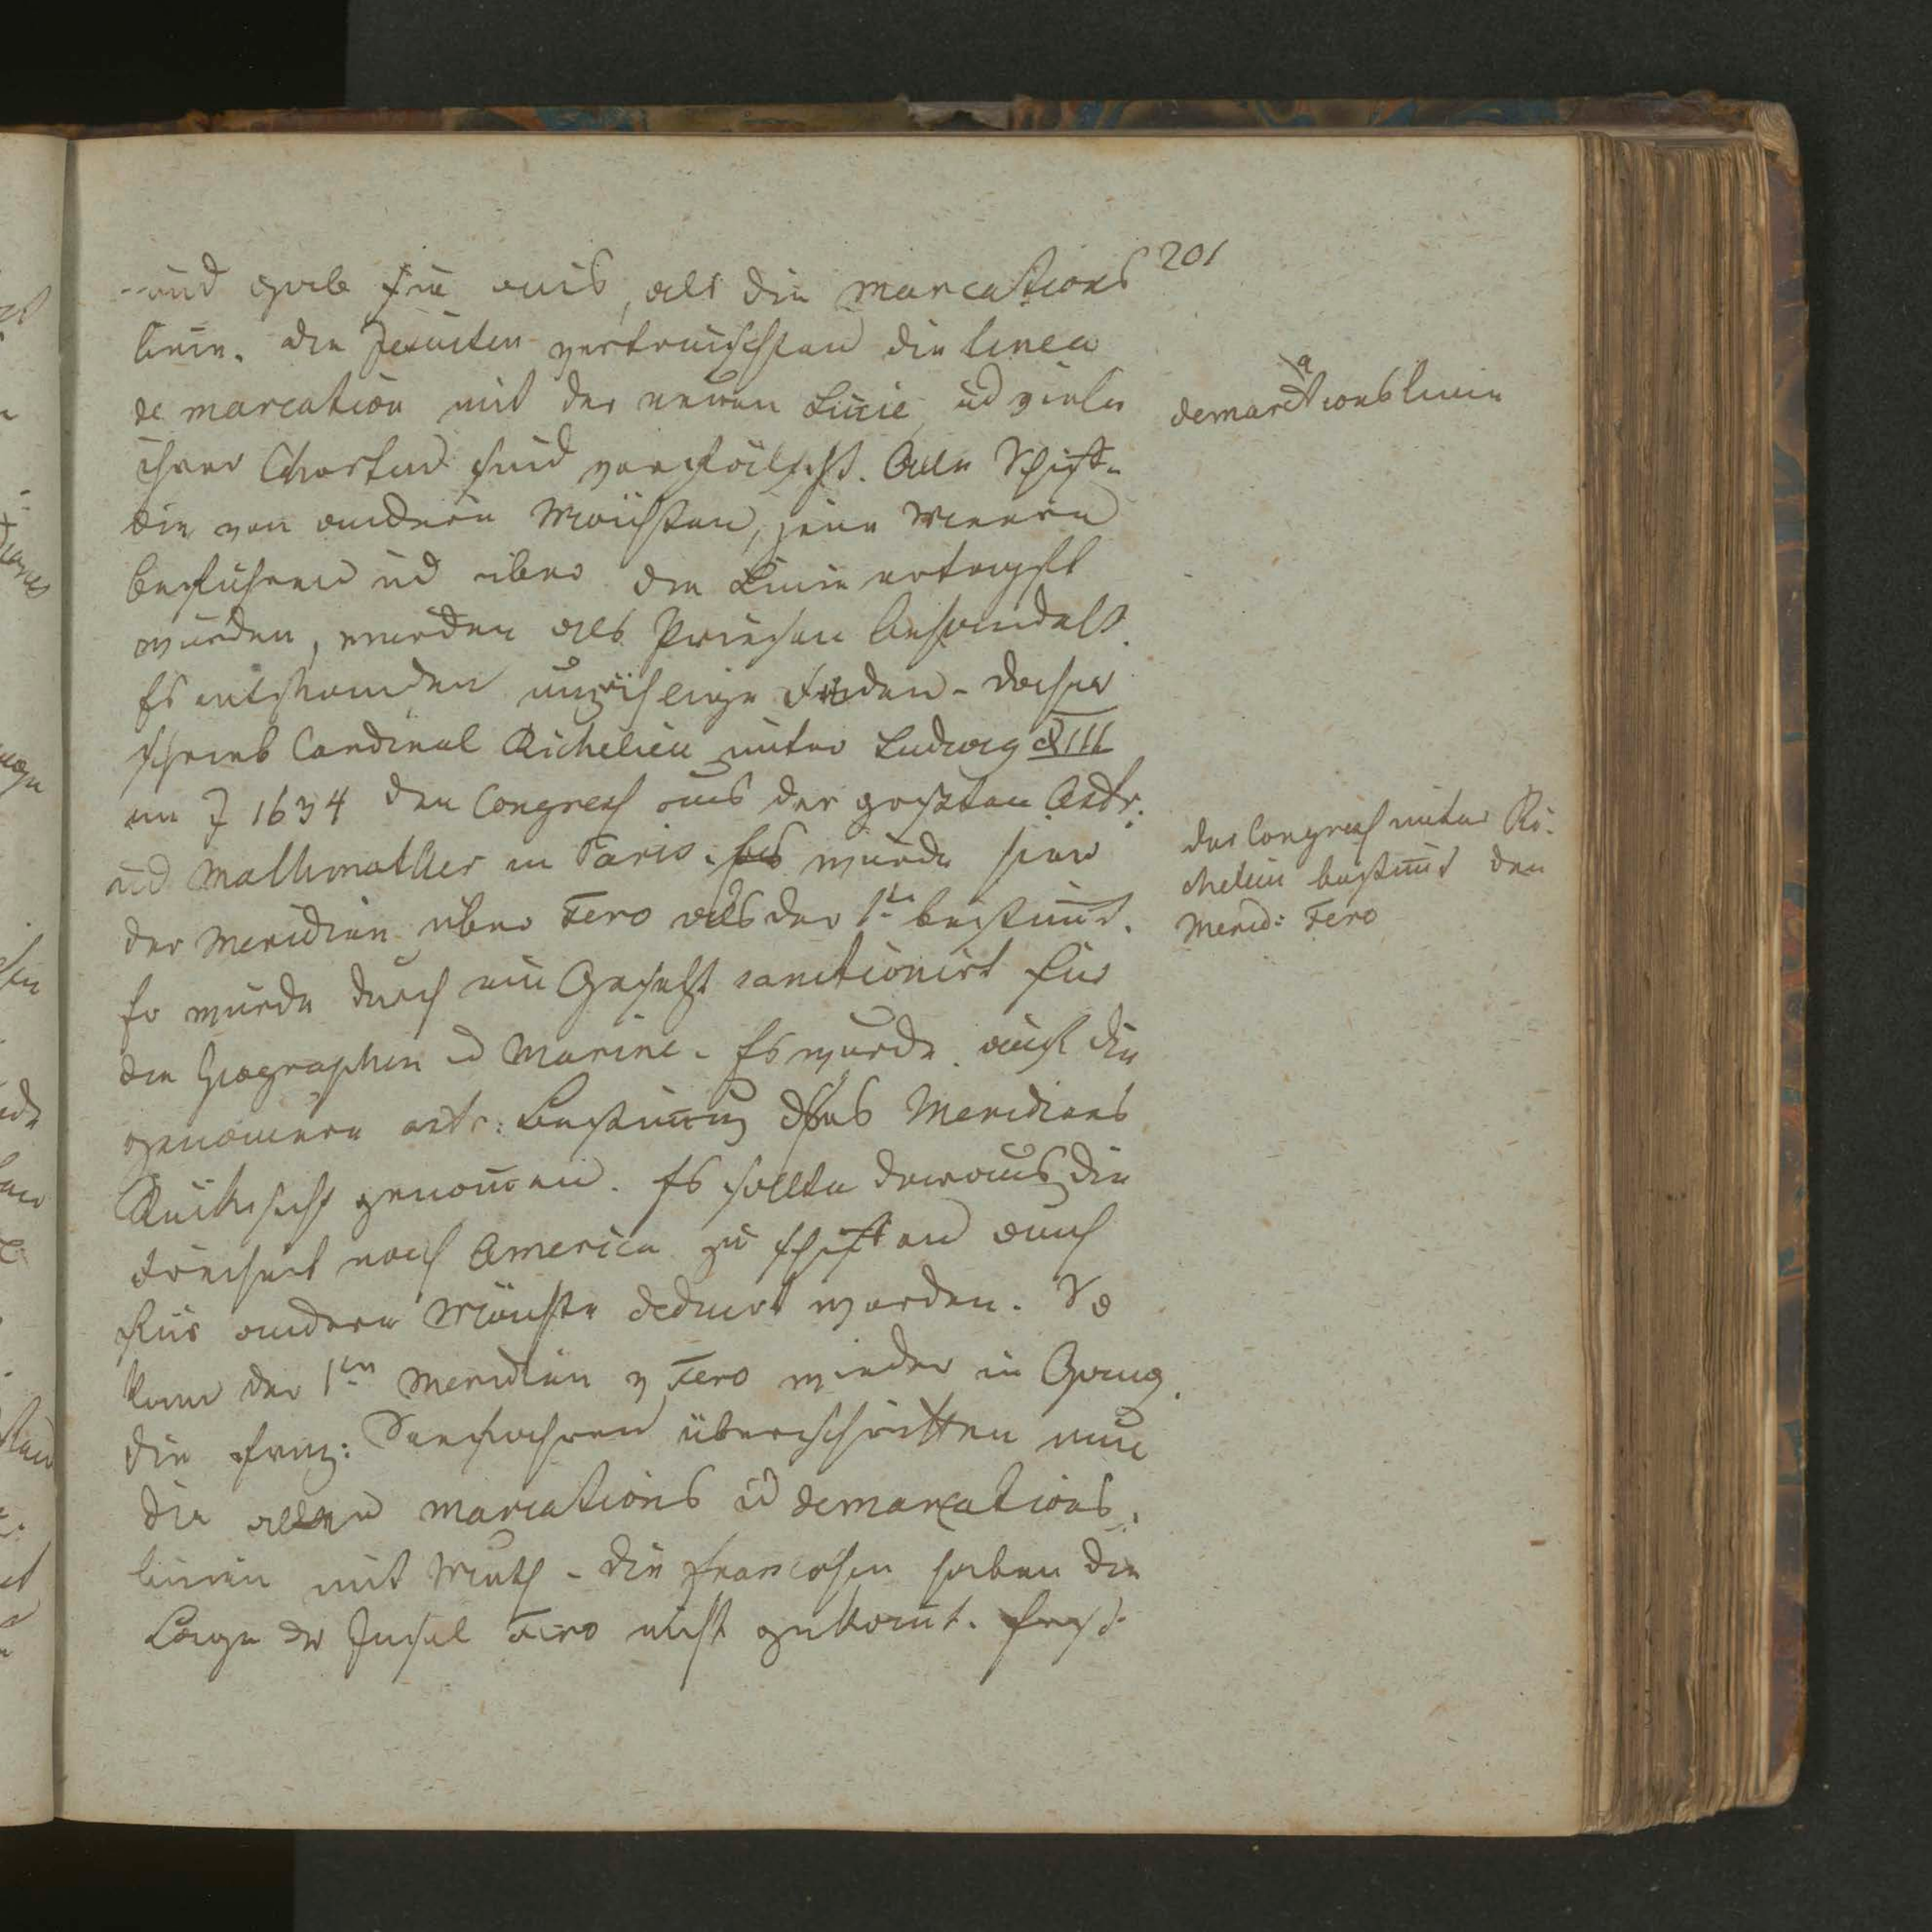 201
und gab sie aus, als die marcations
linie. die Jesuiten vertauschten die linea
de marcation mit der neuen Linie ud viele
ihrer Charten sind verfälscht. Alle Schiffe
die von andern Mächten, jene Meere
befuhren ud über der Linie ertapst
wurden, wurden als Priesen behandelt.
Es entstanden unzählige Fehden - daher
schrieb Cardinal Richelieu unter Ludwig XIII
im J 1634 den Congress aus der grösten Astr.
ud Mathmatker in Paris. Es wurde hier
der Meridian über Fero als der 1te bestimt.
Er wurde durch ein Gesetz sanctionirt für
die Geographen ud Marine. Es wurde auch die
genauere astr: Bestimung dses Meridians
Rücksicht genomen. Es sollte daraus die
Freiheit nach America zu schiffen auch
für andere Mächte deducirt werden. So
kam der 1te Meridian v Fero wieder in Gang.
die franz: Seefahrer überschritten nun
die alten marcations ud demarcations
linien mit Muth - die Franzosen haben die
Lage der Insel Fero nicht gekant. Erst
demarcationslinie
der Congress unter Ri-
chelieu bestimt den
Merid: Fero